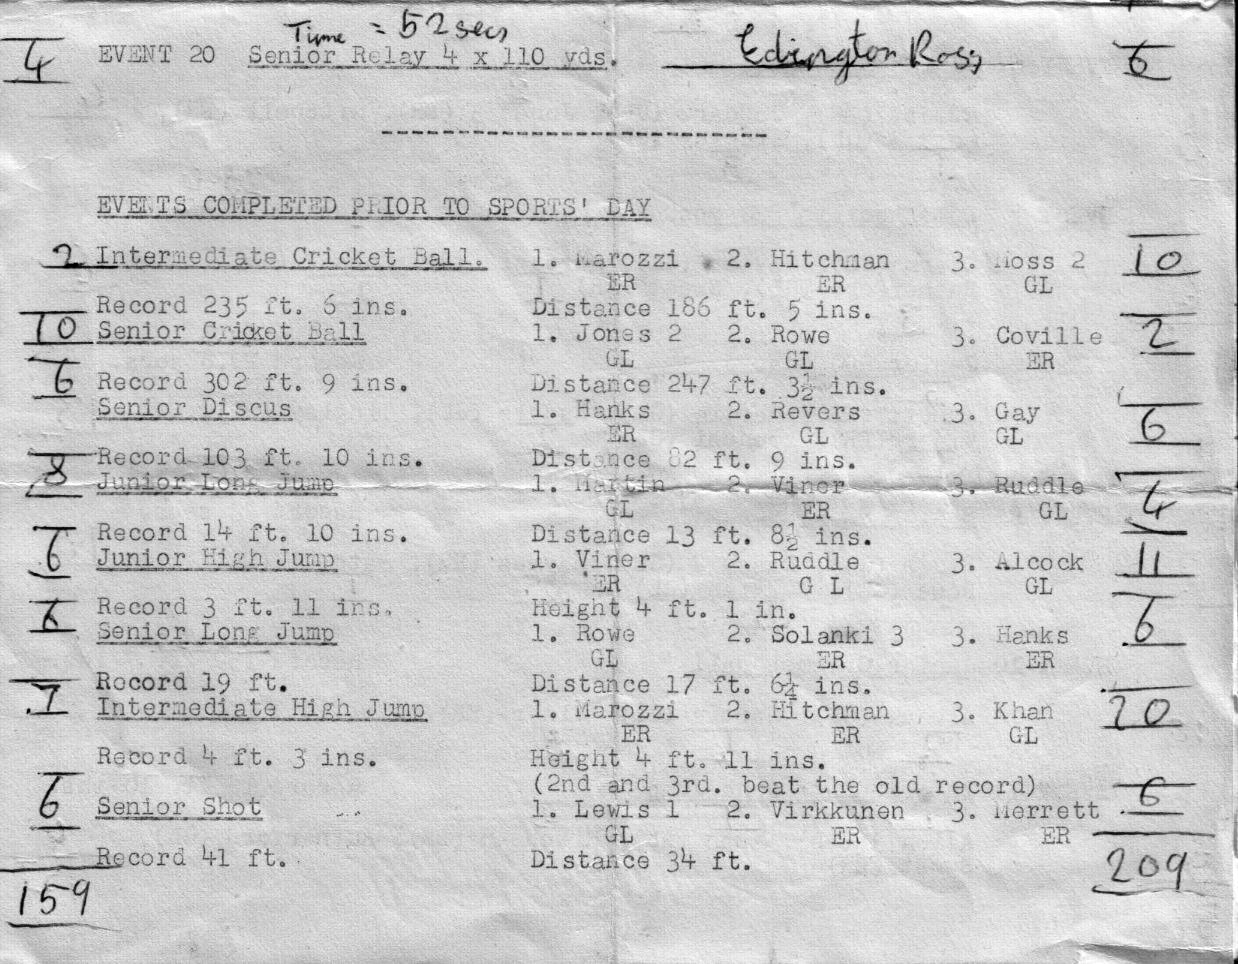 Time = 52 secs
4 EVENT 20 Senior Relay 4 x 110 yds. Edington Ross 6
EVENTS COMPLETED PRIOR TO SPORTS' DAY
2 Intermediate Cricket Ball. 1. Marozzi 2. Hitchman 3. Moss 2 10
ER ER GL
Record 235 ft. 6 ins. Distance 186 ft. 5 ins.
10 Senior Cricket Ball 1. Jones 2 2. Rowe 3. Coville 2
GL GL ER
6 Record 302 ft. 9 ins. Distance 247 ft. 3½ ins.
Senior Discus 1. Hanks 2. Revers 3. Gay 6
ER GL GL
Record 103 ft. 10 ins. Distance 82 ft. 9 ins.
8 Junior Long Jump 1. Martin 2. Viner 3. Ruddle 4
GL ER GL
Record 14 ft. 10 ins. Distance 13 ft. 8½ ins.
6 Junior High Jump 1. Viner 2. Ruddle 3. Alcock 11
ER G L GL
Record 3 ft. 11 ins. Height 4 ft. 1 in.
Senior Long Jump 1. Rowe 2. Solanki 3 3. Hanks 6
GL ER ER
Record 19 ft. Distance 17 ft. 6½ ins.
1 Intermediate High Jump 1. Marozzi 2. Hitchman 3. Khan
ER ER GL
Record 4 ft. 3 ins. Height 4 ft. 11 ins.
(2nd and 3rd. beat the old record)
6 Senior Shot 1. Lewis 1 2. Virkkunen 3. Merrett 6
GL ER ER
Record 41 ft. Distance 34 ft.
159 209